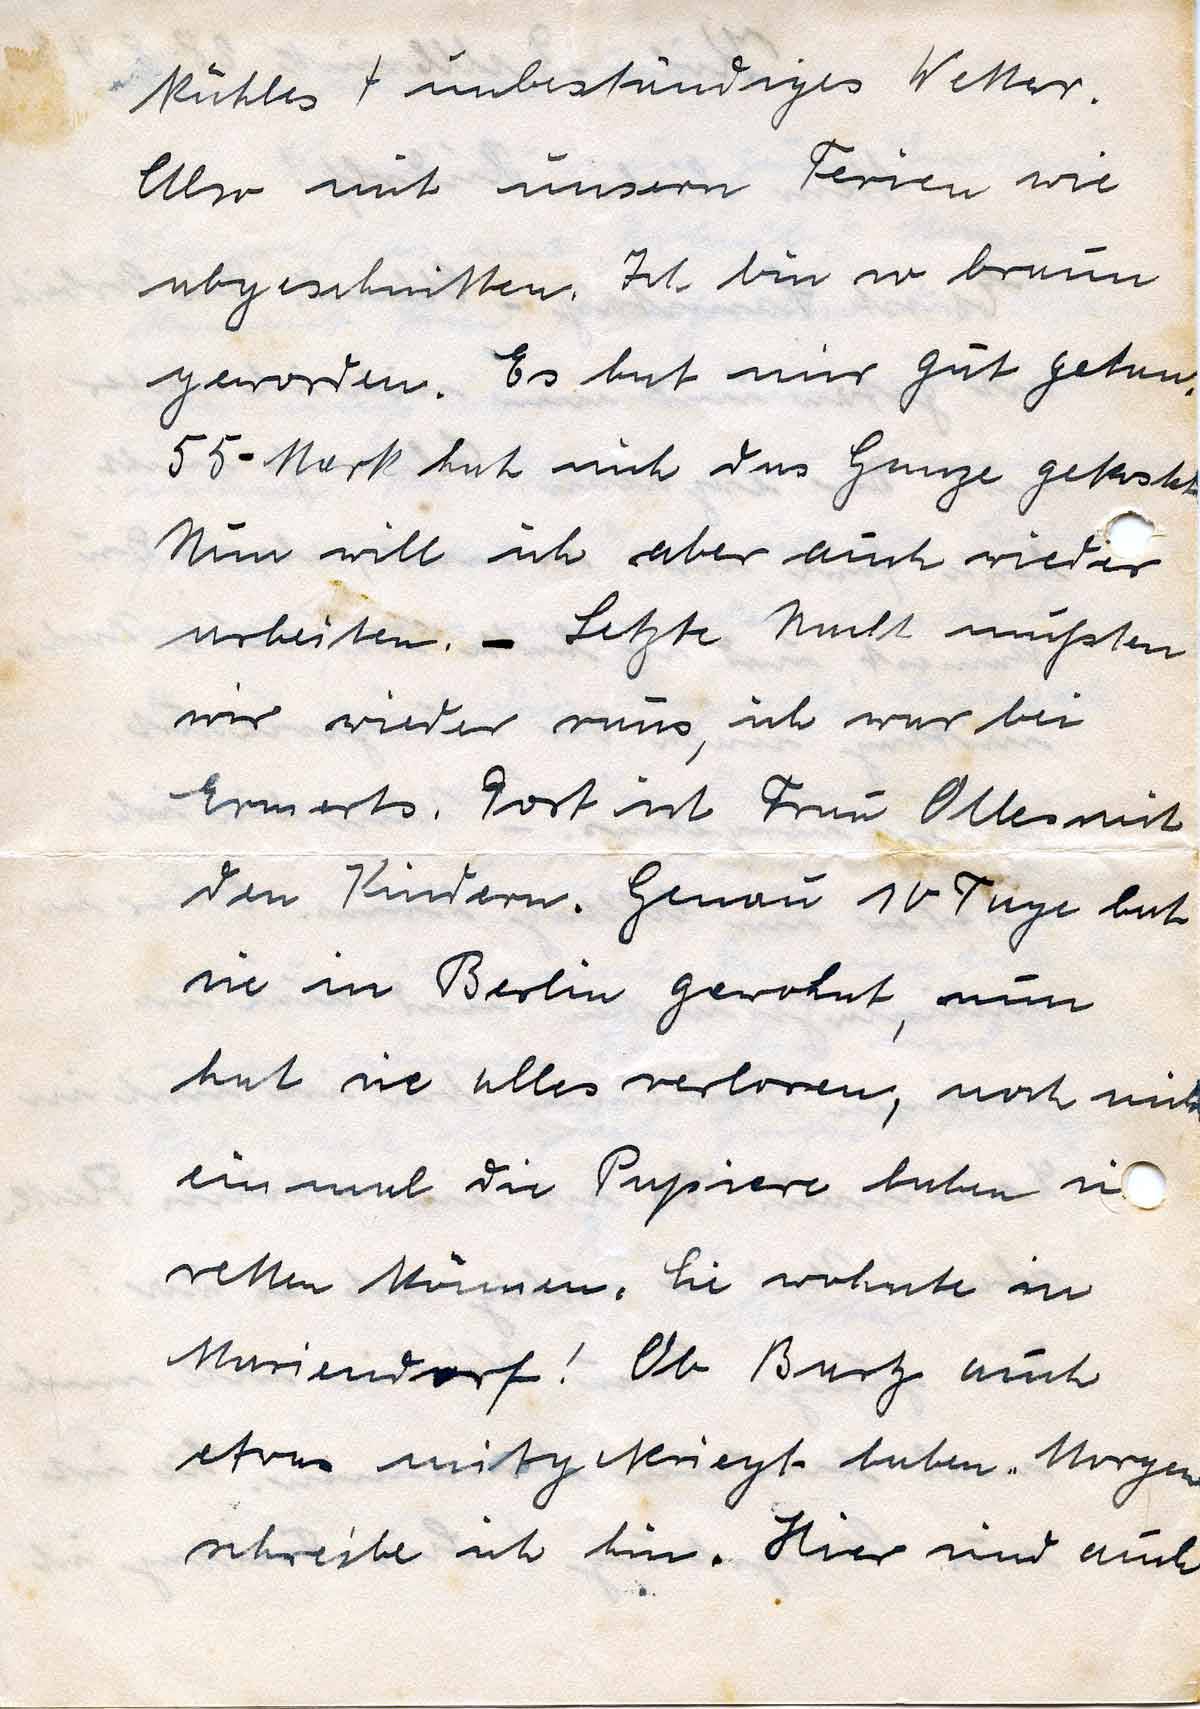 kühles + unbeständiges Wetter.
Also mit unsern Ferien wie
abgeschnitten. Ich bin so braun
geworden. Es hat mir gut getan.
55- Mark hat mich das Ganze gekostet
Nun will ich aber auch wieder
arbeiten. – Letzte Nacht mußten
wir wieder raus, ich war bei
Ermerts. Dort ist Frau Olles mit
den Kindern. Genau 10 Tage hat
sie in Berlin gewohnt, nun
hat sie alles verloren, noch nicht
einmal die Papiere haben sie
retten können. Sie wohnte in
Mariendorf! Ob Bartz auch
etwas mitgekriegt haben. Morgen
schreibe ich hin. Hier sind auch